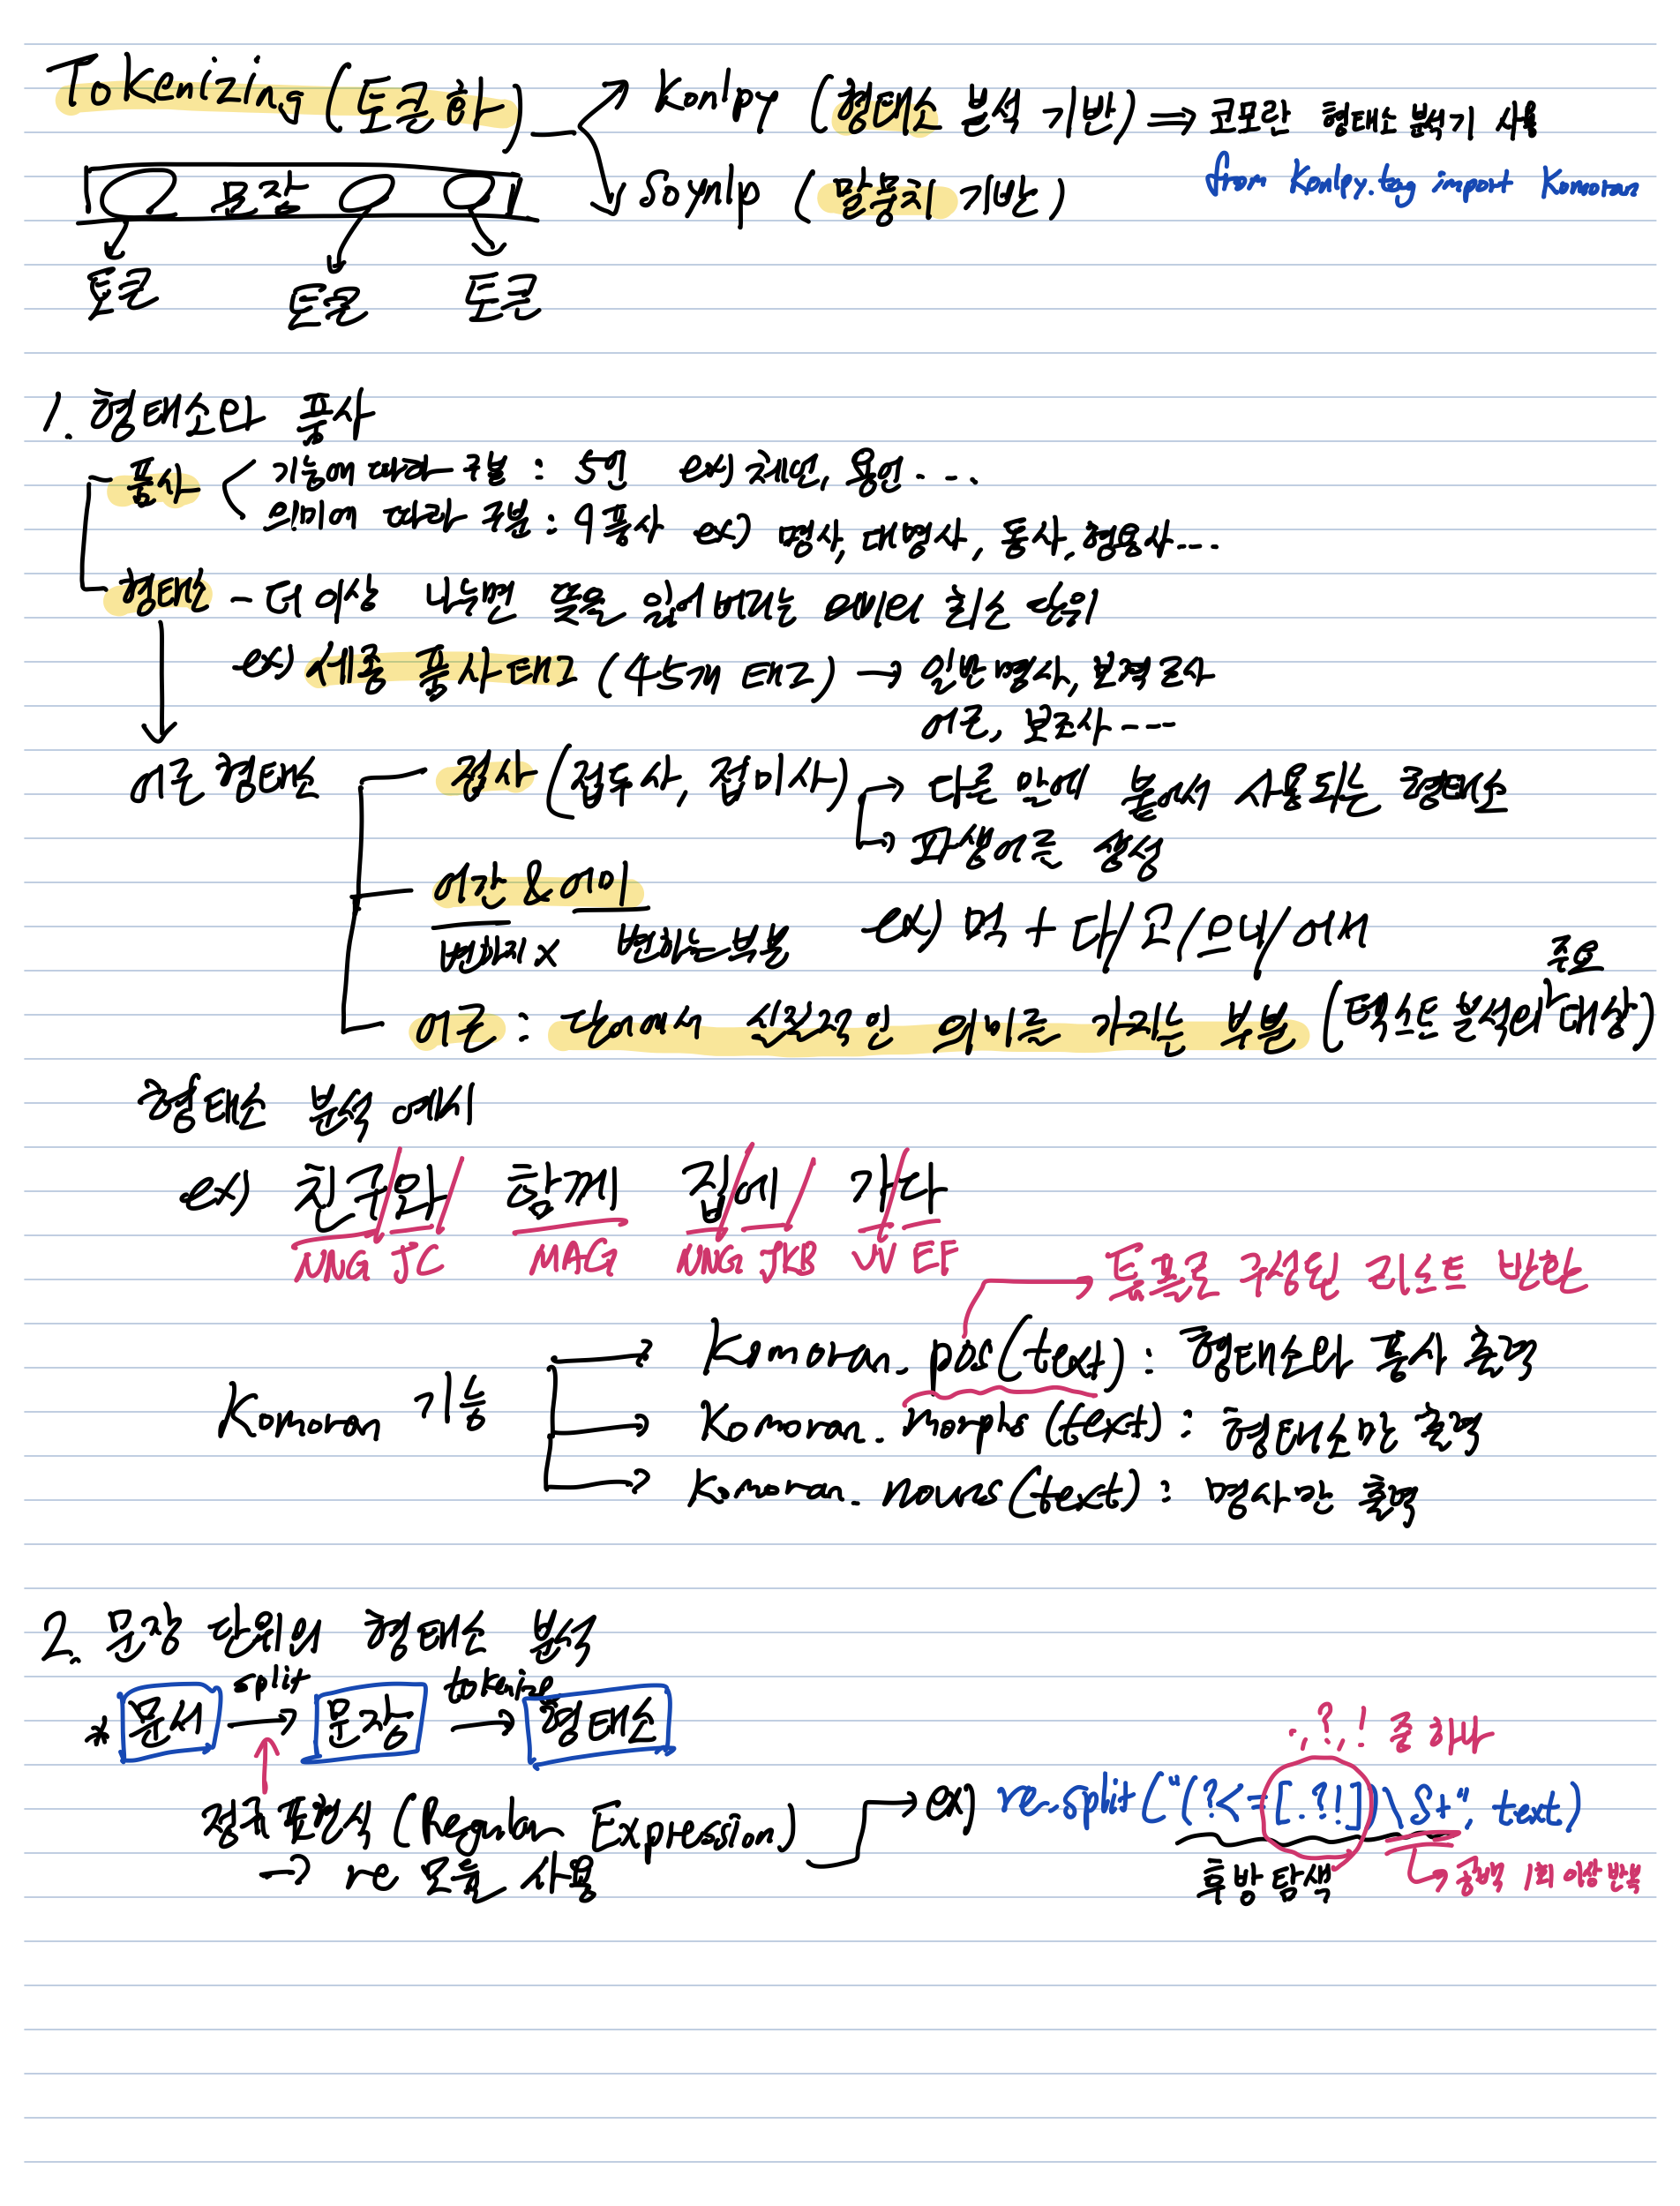 Tokenizing (토큰화) → Konlpy (형태소 분석 기반) ⇒ 코모란 형태소 분석기 사용
from Konlpy.tag import Komoran
→ Soynlp (말뭉치 기반)
문장
토큰 토큰 토큰
1. 형태소와 품사
품사 < 기능에 따라 구별 : 5언 ex) 체언, 용언....
의미에 따라 구분 : 9품사 ex) 명사, 대명사, 동사, 형용사---
형태소 - 더 이상 나누면 뜻을 잃어버리는 의미의 최소 단위
ex) 세종 품사 태그 (45개 태그) → 일반 명사, 보격조사
어근, 보조사----
어근 형태소 접사 (접두사, 접미사) → 다른 말에 붙어서 사용되는 형태소
→ 파생어를 생성
어간 & 어미
변하지 x 변하는 부분 ex) 먹 + 다/고/으니/어서
주요
어근 : 단어에서 실질적인 의미를 가지는 부분 (텍스트 분석의 대상)
형태소 분석 예시
ex) 친구/와/ 함께 집/에/ 가/다
NNG JC MAG NNG JKB VV EF
→ 튜플로 구성된 리스트 반환
Komoran 기능 → Komoran. pos(text) : 형태소와 품사 출력
→ Komoran. morphs (text) : 형태소만 출력
→ Komoran. nouns (text) : 명사만 출력
2. 문장 단위의 형태소 분석
split tokenize
* 문서 → 문장 → 형태소
., ?, ! 중 하나
정규 표현식 (Regular Expression) → ex) re.split("(?<=[.?!])\S+", text)
→ re 모듈 사용
후방 탐색 → 공백 1회 이상 반복